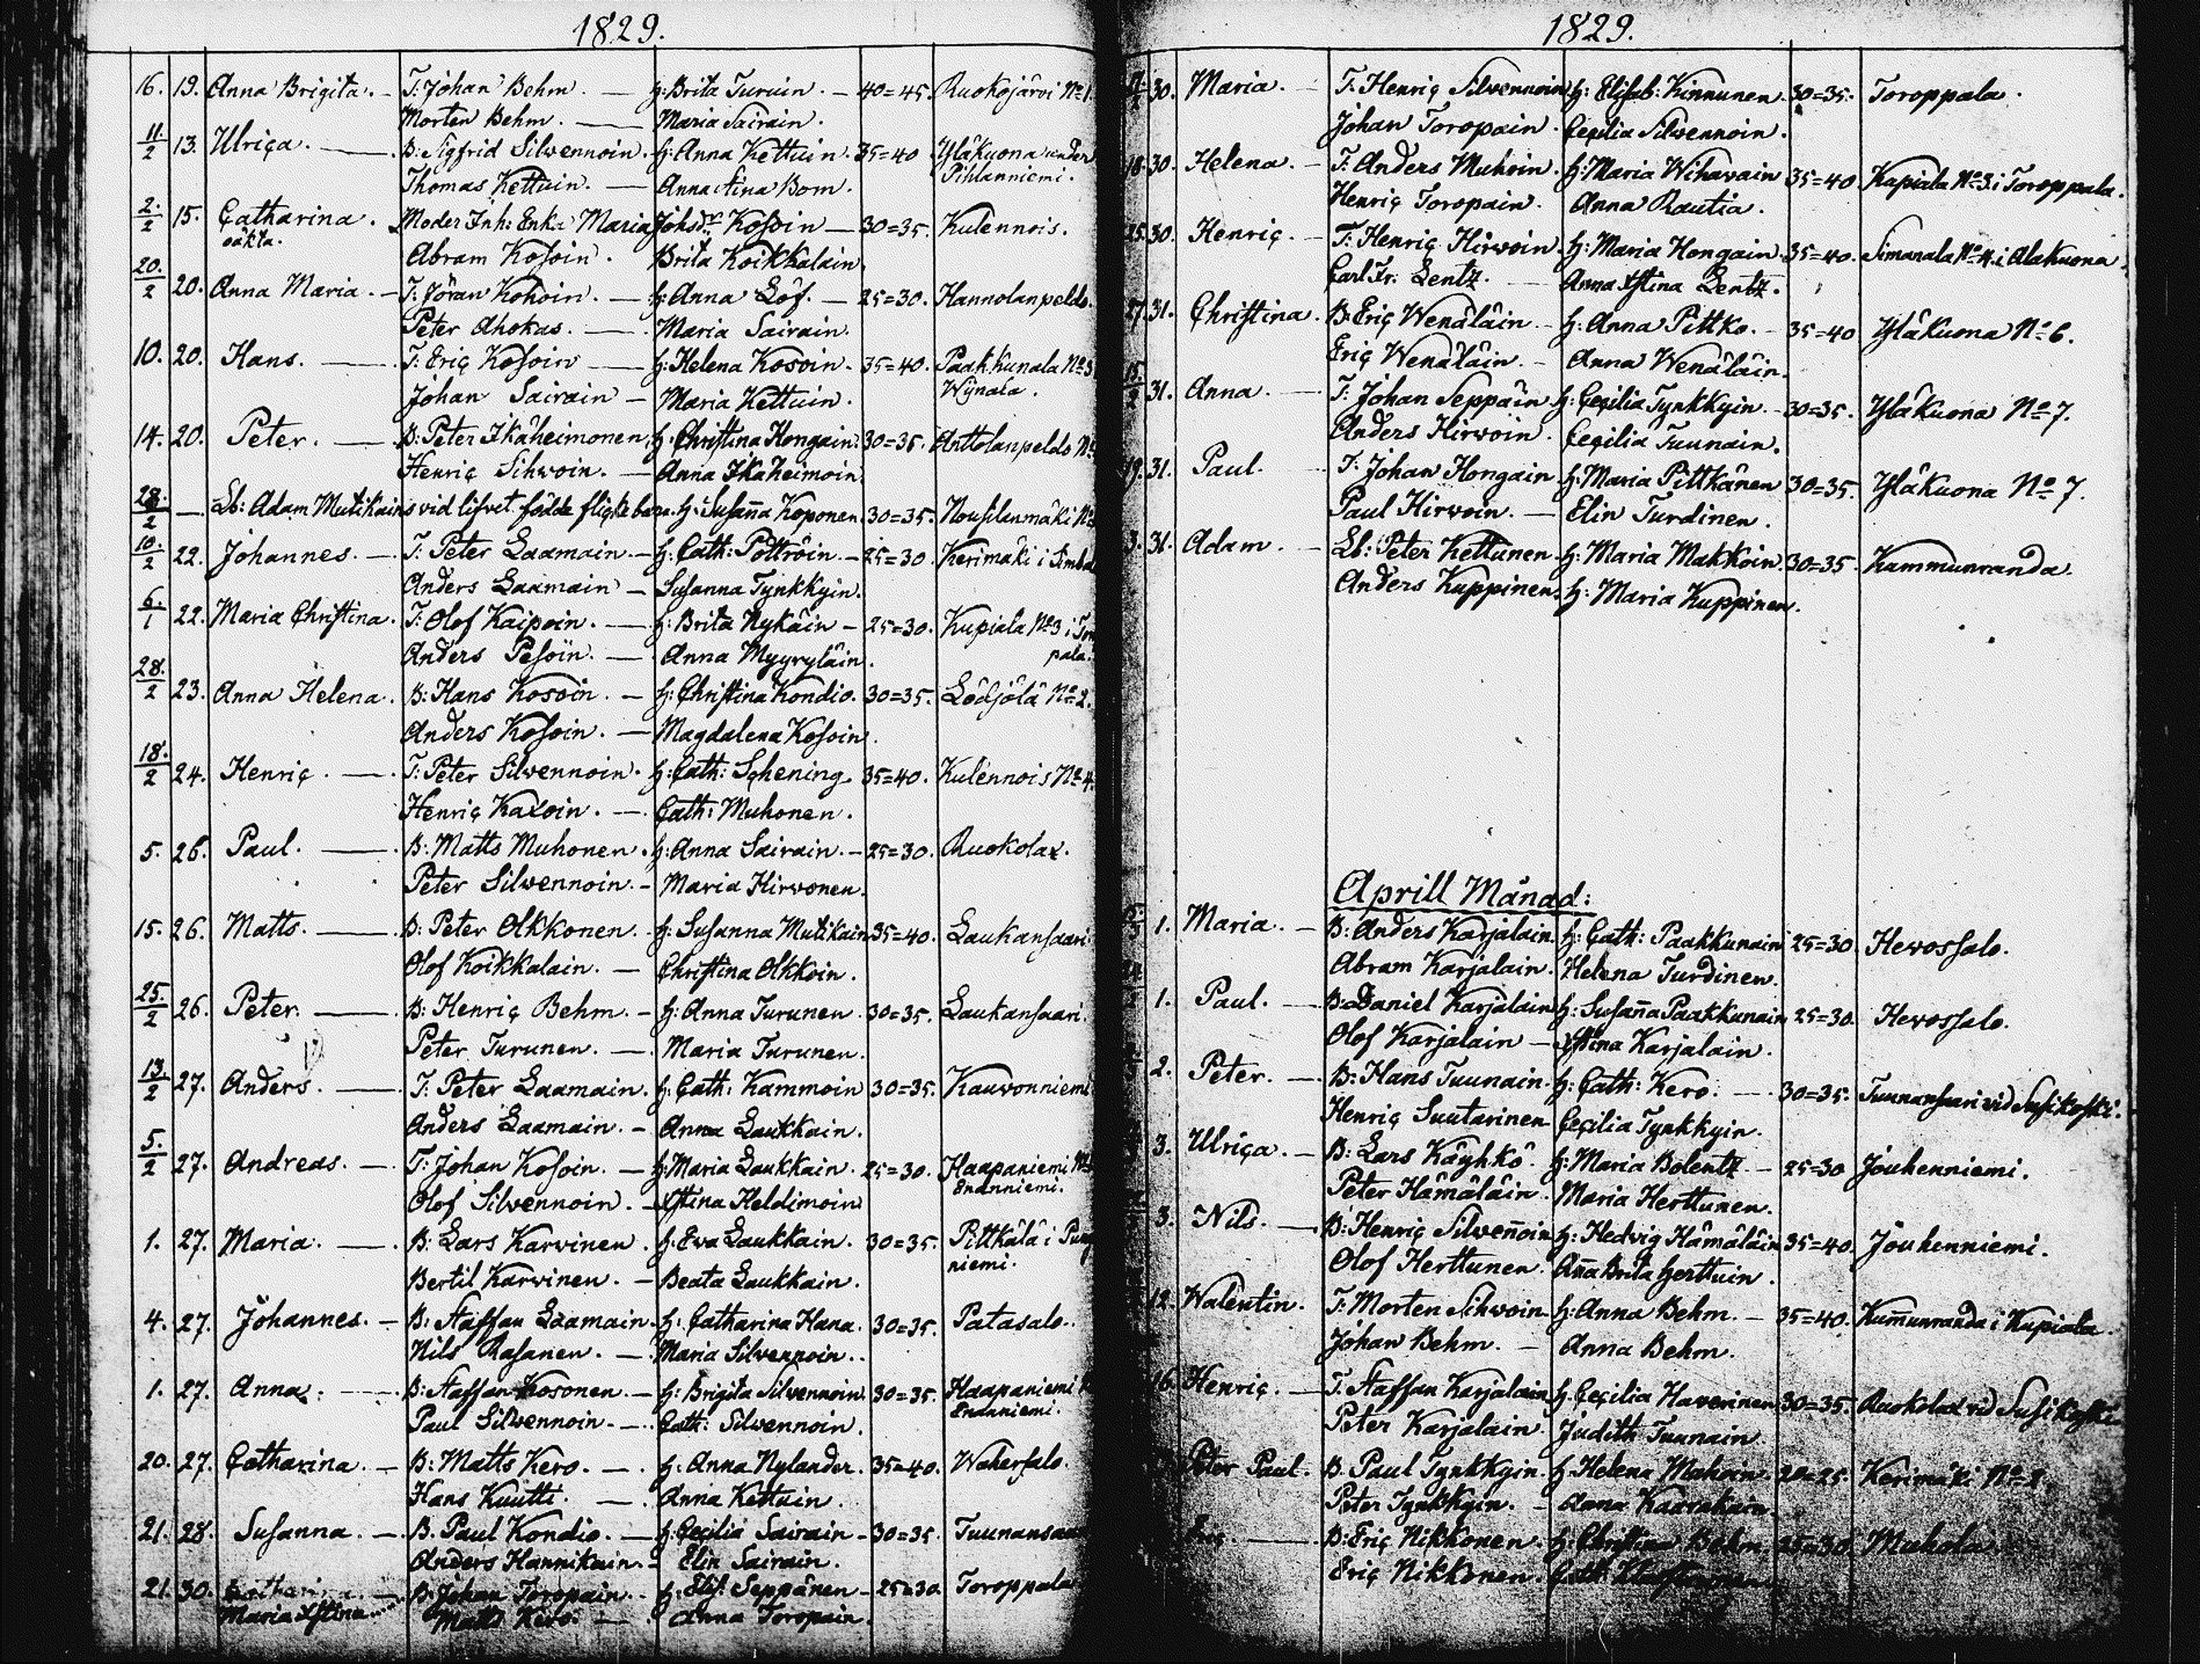 1829.
16. 19. Anna Brigita. T: Johan Behm. H: Brita Turuin. 40=45. Ruokojärvi No 1.
Morten Behm. Maria Sairain.
11./2 13. Ulrica. B: Sigfrid Silvennoin. H: Anna Kettuin. 35=40 Yläkuona under
Thomas Kettuin. Anna Stina Bom. Pihlanniemi.
2./2 15. Catharina. Moder Inh: Enka Maria Johsdr Kosoin 30=35. Kulennois.
oäkta. Abram Kosoin. Brita Koikkalain.
20./2 20. Anna Maria. T: Jöran Kohoin. H: Anna Löf. 25=30. Hannolanpeldo.
Peter Ahokas. Maria Sairain.
10. 20. Hans. T: Eric Kosoin H: Helena Kosoin. 35=40. Paakkunala No 3
Johan Sairain Maria Kettuin. Wijnala.
14. 20. Peter. B: Peter Ikäheimonen. H: Christina Hongain. 30=35. Anttolanpeldo No
Henric Sihvoin. Anna Ikäheimoin.
28./2 Lb: Adam Mutikains vid lifvet födde flickebarn. H: Susanna Koponen. 30=35. Nousilanmäki No
10./2 22. Johannes. T: Peter Laamain. H: Cath: Pöttröin. 25=30. Kerimäki i Simbal
Anders Laamain Susanna Tynkkyin.
6./1 22. Maria Christina. T: Olof Kaipoin. H: Brita Nykäin 25=30. Kupiala No 3 i Torop
Anders Pesöin. Anna Myyryläin. pala.
28./2 23. Anna Helena. B: Hans Kosoin. H: Christina Kondio. 30=35. Lödjölä No 2.
Anders Kosoin. Magdalena Kosoin.
18./2 24. Henric. T: Peter Silvennoin. H: Cath: Schening. 35=40. Kulennois No 4.
Henric Kaxoin. Cath: Muhonen.
5. 26. Paul. B: Matts Muhonen. H: Anna Sairain. 25=30. Ruokolax.
Peter Silvennoin. Maria Hirvonen.
15. 26. Matts. B: Peter Olkkonen. H: Susanna Mutikain 35=40. Laukansaari.
Olof Koikkalain. Christina Olkkoin.
25./2 26. Peter B: Henric Behm. H: Anna Turunen. 30=35. Laukansaari.
Peter Turunen. Maria Turunen.
13./2 27. Anders. T: Peter Laamain. H: Cath: Kammoin 30=35. Kauvonniemi
Anders Laamain. Anna Laukkain.
5./2 27. Andreas. T: Johan Kosoin. H: Maria Laukkain. 25=30. Haapaniemi No
Olof Silvennoin. Xstina Heldimoin Enanniemi.
1. 27. Maria. B: Lars Karvinen. H: Eva Laukkain. 30=35. Pittkälä i Pung
Bertil Karvinen. Beata Laukkain. niemi.
4. 27. Johannes. B: Staffan Laamain. H: Catharina Hana. 30=35. Patasalo.
Nils Rasanen. Maria Silvennoin.
1. 27. Anna. B: Staffan Kosonen. H: Brigita Silvennoin. 30=35. Haapaniemi
Paul Silvennoin. Cath: Silvennoin. Enanniemi.
20. 27. Catharina. B: Matts Kero. H: Anna Nylander. 35=40. Wahersalo.
Hans Kuutti. Anna Kettuin.
21. 28. Susanna. B. Paul Kondio. H: Cecilia Sairain 30=35. Tuunansaari
Anders Hannikain. Elin Sairain.
21. 30. Catharina B: Johan Toropain. H: Elis: Seppänen 25=30. Toroppala
Maria Xstina Matts Kero. Anna Toropain.
1829.
30. Maria. T: Henric Silvennoin H: Elisab: Kinnunen. 30=35. Toroppala.
Johan Toropain. Cecilia Silvennoin.
18. 30. Helena. T: Anders Muhoin. H: Maria Wihavain 35=40 Kapiala No 3. i Toroppala.
Henric Toropain. Anna Rautia.
25. 30. Henric. T: Henric Hirvoin. H: Maria Hongain. 35=40. Simanala No 4. i Alakuona.
Carl Fr. Lentz. Anna Xstina Lentz.
27. 31. Christina. B: Eric Wenäläin. H: Anna Pittko. 35=40 Yläkuona No 6.
Eric Wenäläin. Anna Wenäläin.
15./2 31. Anna. T: Johan Seppäin H: Cecilia Tynkkyin. 30=35. Yläkuona No 7.
Anders Hirvoin. Cecilia Tuunain.
19. 31. Paul. T: Johan Hongain H: Maria Pittkänen 30=35. Yläkuona No 7.
Paul Hirvoin. Elin Turdinen.
3. 31. Adam. Lb: Peter Kettunen. H: Maria Makkoin. 30=35. Kammunranda.
Anders Kuppinen. H: Maria Kuppinen.
Aprill Månad:
1. Maria. B: Anders Karjalain. H: Cath: Paakkunain 25=30. Hevossalo.
Abram Karjalain. Helena Turdinen.
1. Paul. B: Daniel Karjalain H: Susanna Paakkunain 25=30. Hevossalo.
Olof Karjalain Xstina Karjalain.
2. Peter. B: Hans Tuunain. H: Cath: Kero. 30=35. Tuunansaari vid Susikoski.
Henric Suutarinen Cecilia Tynkkyin.
3. Ulrica. B: Lars Käyhkö. H: Maria Bolentz 25=30 Jouhenniemi.
Peter Hämäläin. Maria Herttunen.
3. Nils. B: Henric Silvennoin H: Hedvig Hämäläin 35=40. Jouhenniemi.
Olof Herttunen. Anna Brita Herttuin.
12. Walentin. T: Morten Sihvoin. H: Anna Behm. 35=40. Kummunranda i Kupiala.
Johan Behm. Anna Behm.
16. Henric. T: Staffan Karjalain H: Cecilia Haverinen 30=35. Ruokolax vid Susikoski
Peter Karjalain. Judith Tuunain
Peter Paul. B. Paul Tynkkyin. H: Helena Mahoin. 20=25. Kerimäki No
Peter Tynkkyin. Anna Kaarakain.
B: Eric Nikkonen. H: Christina Behm. 25=30 Muhola
Eric Nikkonen. Cath: